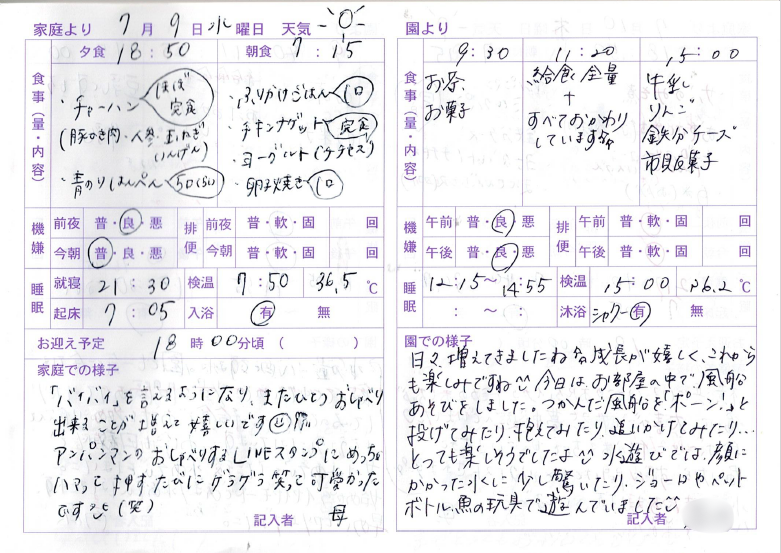 家庭より 7月9日水曜日 天気
夕食 18:50 朝食 7:15
食事(量・内容)
・チャーハン ほぼ完食
(豚ひき肉・人参・玉ねぎ
いんげん)
・青のりはんぺん 5つくらい
・ふりかけごはん 1口
・チキンナゲット 完食
・ヨーグルト(ケラセズ)
・卵焼き 1口
機嫌 前夜 普・良・悪 排便 前夜 普・軟・固 回
今朝 普・良・悪 今朝 普・軟・固 回
睡眠 就寝 21:30 検温 7:50 36.5℃
起床 7:05 入浴 有 無
お迎え予定 18時00分頃( )
家庭での様子
「バイバイ」を言えるようになり、またひとつおしゃべり
出来ることが増えて嬉しいです
アンパンマンのおしゃべりするLINEスタンプにめっちゃ
ハマって押すたびにゲラゲラ笑って可愛かった
です(笑)
記入者 母
園より
9:30 11:20 15:00
食事(量・内容)
お茶
お菓子
給食 全量
+
すべておかわり
しています
牛乳
りんご
鉄分チーズ
市販菓子
機嫌 午前 普・良・悪 排便 午前 普・軟・固 回
午後 普・良・悪 午後 普・軟・固 回
睡眠 12:15〜14:55 検温 15:00 36.2℃
:〜: 沐浴 シャワー 有 無
園での様子
日々増えてきましたね 成長が嬉しく、これから
も楽しみですね 今日は、お部屋の中で風船
あそびをしました。つかんだ風船を「ポーン!」と
投げてみたり、抱えてみたり、追いかけてみたり…
とっても楽しそうでしたよ 水遊びでは、顔に
かかった水に少し驚いたり、ジョーロやペット
ボトル、魚の玩具で遊んでいました
記入者